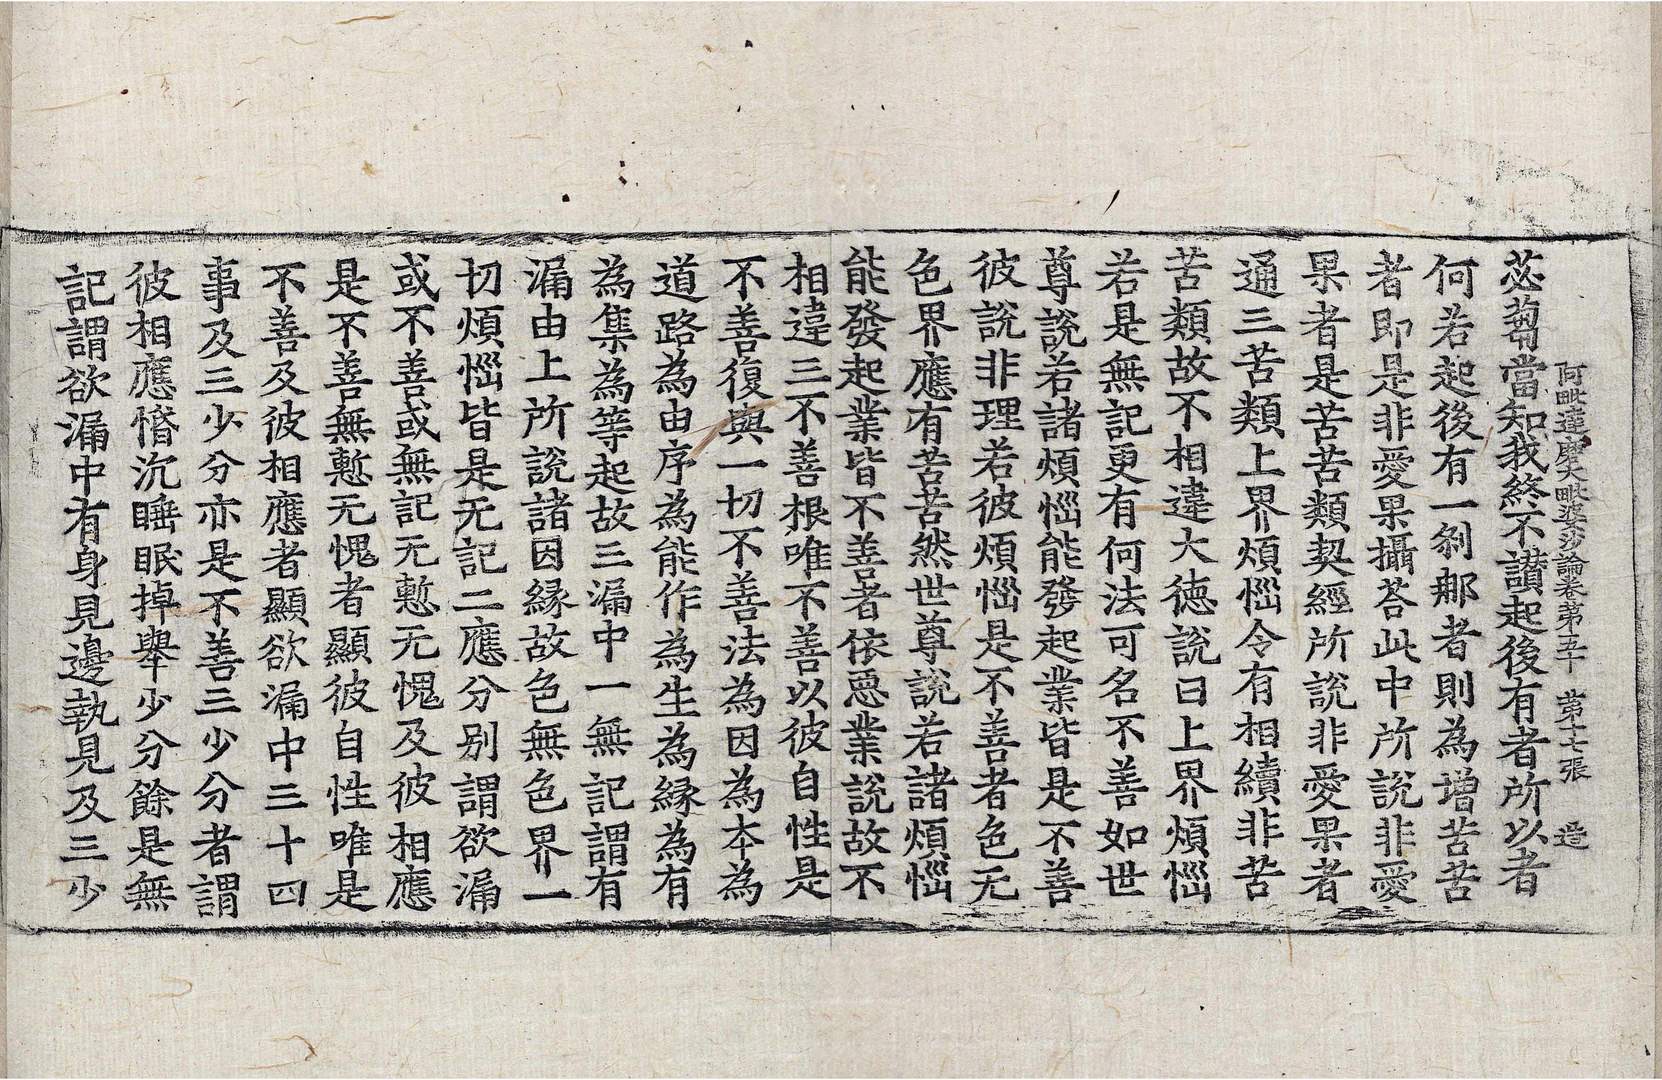 阿毗達磨大毗婆沙論卷第五十　第十七張　造
苾蒭當知我終不讃起後有者所以者
何若起後有一剎那者則為增苦苦
者即是非愛果攝荅此中所說非愛
果者是苦苦類契經所說非愛果者
通三苦類上界煩惱令有相續非苦
苦類故不相違大德說曰上界煩惱
若是無記更有何法可名不善如世
尊說若諸煩惱能發起業皆是不善
彼說非理若彼煩惱是不善者色无
色界應有苦苦然世尊說若諸煩惱
能發起業皆不善者依惡業說故不
相違三不善根唯不善以彼自性是
不善復與一切不善法為因為本為
道路為由序為能作為生為緣為有
為集為等起故三漏中一無記謂有
漏由上所說諸因緣故色無色界一
切煩惱皆是无記二應分別謂欲漏
或不善或無記无慙无愧及彼相應
是不善無慙无愧者顯彼自性唯是
不善及彼相應者顯欲漏中三十四
事及三少分亦是不善三少分者謂
彼相應惛沉睡眠掉舉少分餘是無
記謂欲漏中有身見邊執見及三少